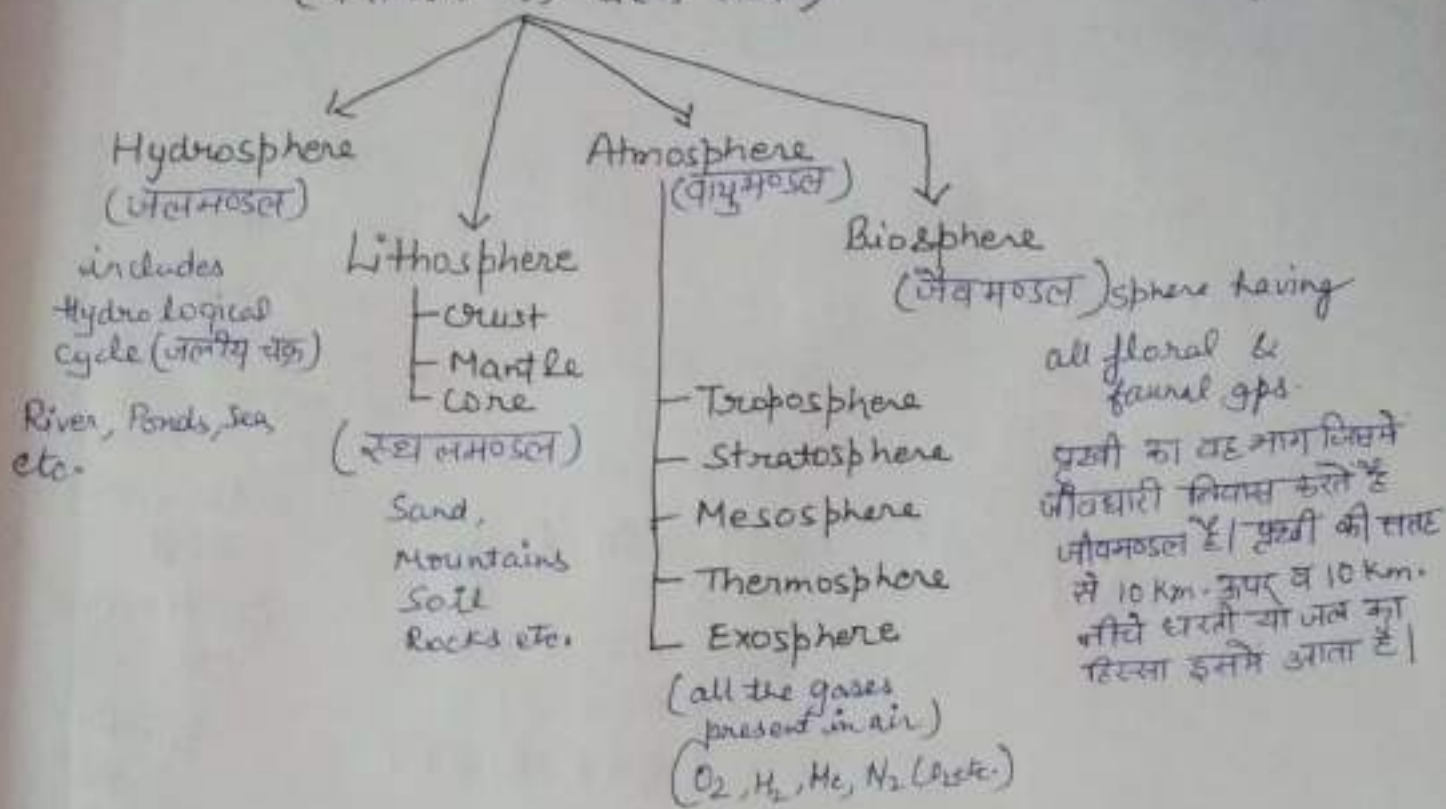 Hydrosphere
(जलमण्डल)
includes
Hydrological
Cycle (जलीय चक्र)
River, Ponds, Sea,
etc.
Lithosphere
Crust
Mantle
Core
(स्थलमण्डल)
Sand,
Mountains
Soil
Rocks etc.
Atmosphere
(वायुमण्डल)
Troposphere
Stratosphere
Mesosphere
Thermosphere
Exosphere
(all the gases
present in air)
(O₂, H₂, He, N₂
Biosphere
(जैवमण्डल) sphere having
all floral &
faunal gps.
पृथ्वी का वह भाग जिसमे
जीवधारी निवास करते है
जीवमण्डल है। पृथ्वी की सतह
से 10 Km. ऊपर व 10 Km.
नीचे धरती या जल का
हिस्सा इसमे आता है।